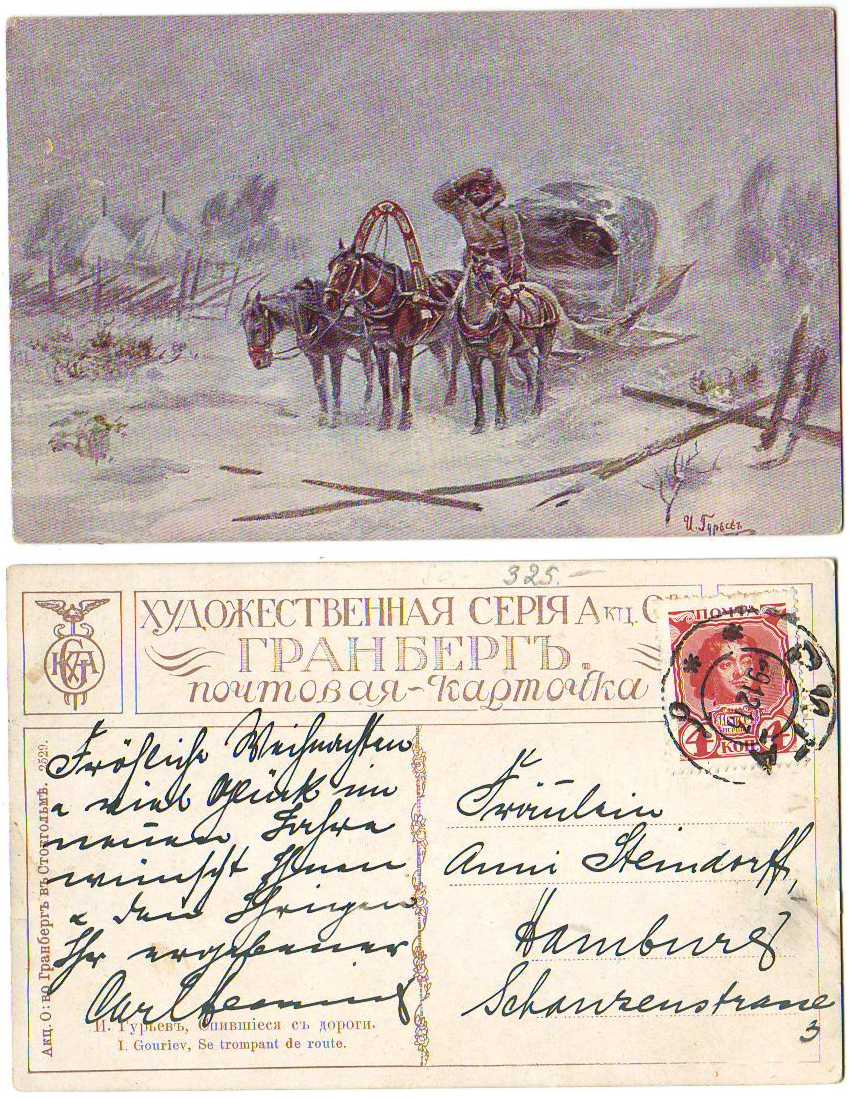 И. Гурьевъ
325.—
ХУДОЖЕСТВЕННАЯ СЕРІЯ Акц. О
ГРАНБЕРГЪ.
почтовая-карточка
ПОЧТА
4 КОП. 4
Fröhliche Weihnachten
u viel Glück im
neuen Jahre
wünscht Ihnen
u den Ihrigen
Ihr ergebener
Carl
Fräulein
Anni Steindorff,
Hamburg
Schanzenstrasse
3
И. Гурьевъ, Сбившіеся съ дороги.
I. Gouriev, Se trompant de route.
Акц. О:во Гранбергъ въ Стокгольмѣ. 2529.